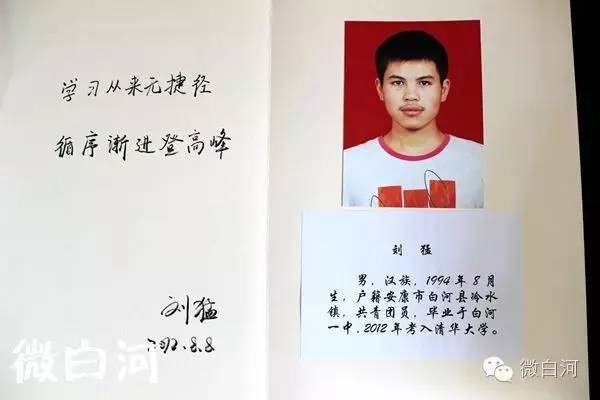 学习从来无捷径
循序渐进登高峰
刘猛
2012.8.8
刘 猛
男，汉族，1994年8月
生，户籍安康市白河县冷水
镇，共青团员，毕业于白河
一中，2012年考入清华大学。
微白河
微白河